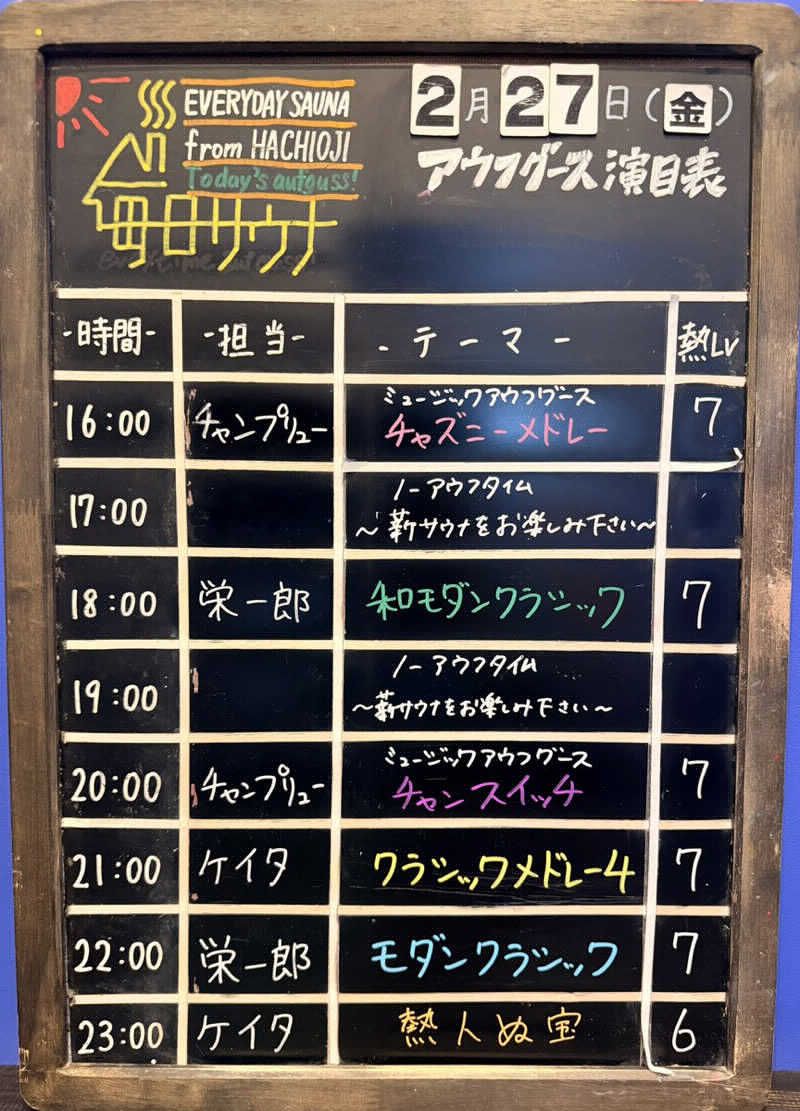 EVERYDAY SAUNA
from HACHIOJI
Today's autouss!
毎日サウナ
2月27日(金)
アウフグース演目表
-時間- -担当- -テーマー 熱Lv
16:00 チャンプリュー ミュージックアウフグース 7
チャズニーメドレー
17:00 ノーアウフタイム
～薪サウナをお楽しみ下さい～
18:00 栄一郎 和モダンクラシック 7
19:00 ノーアウフタイム
～薪サウナをお楽しみ下さい～
20:00 チャンプリュー ミュージックアウフグース 7
チャンスイッチ
21:00 ケイタ クラシックメドレー4 7
22:00 栄一郎 モダンクラシック 7
23:00 ケイタ 熱人ぬ宝 6